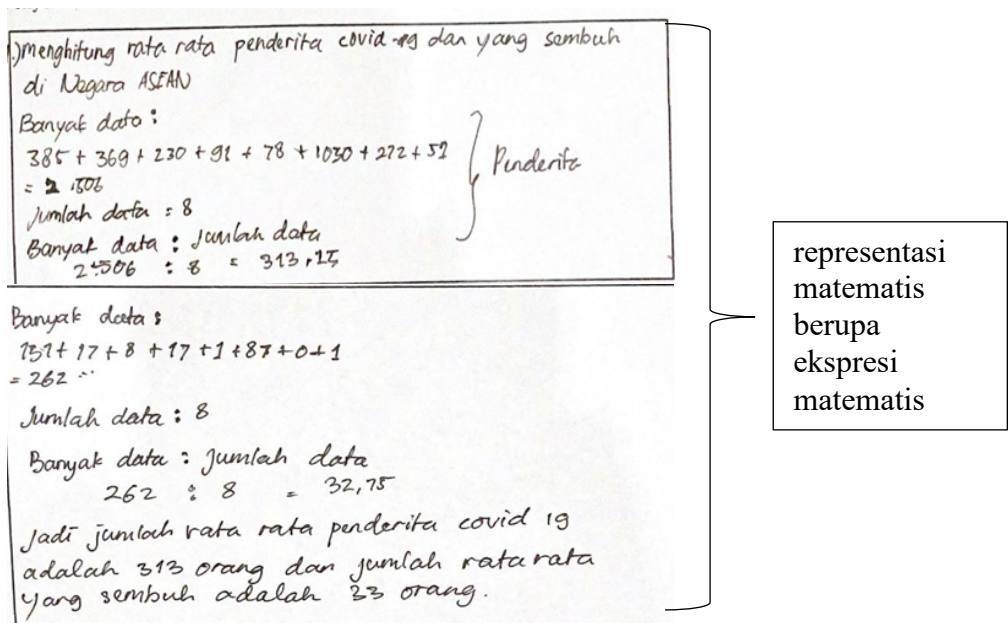 1.)menghitung rata rata penderita covid-19 dan yang sembuh
di Negara ASEAN
Banyak data :
385 + 369 + 230 + 91 + 78 + 1030 + 272 + 51
= 2.506
Jumlah data : 8
Banyak data : Jumlah data
2.506 : 8 = 313,25
Penderita
Banyak data :
131 + 17 + 8 + 17 + 1 + 87 + 0 + 1
= 262
Jumlah data : 8
Banyak data : Jumlah data
262 : 8 = 32,75
Jadi jumlah rata rata penderita covid 19
adalah 313 orang dan jumlah rata rata
yang sembuh adalah 33 orang.
representasi
matematis
berupa
ekspresi
matematis